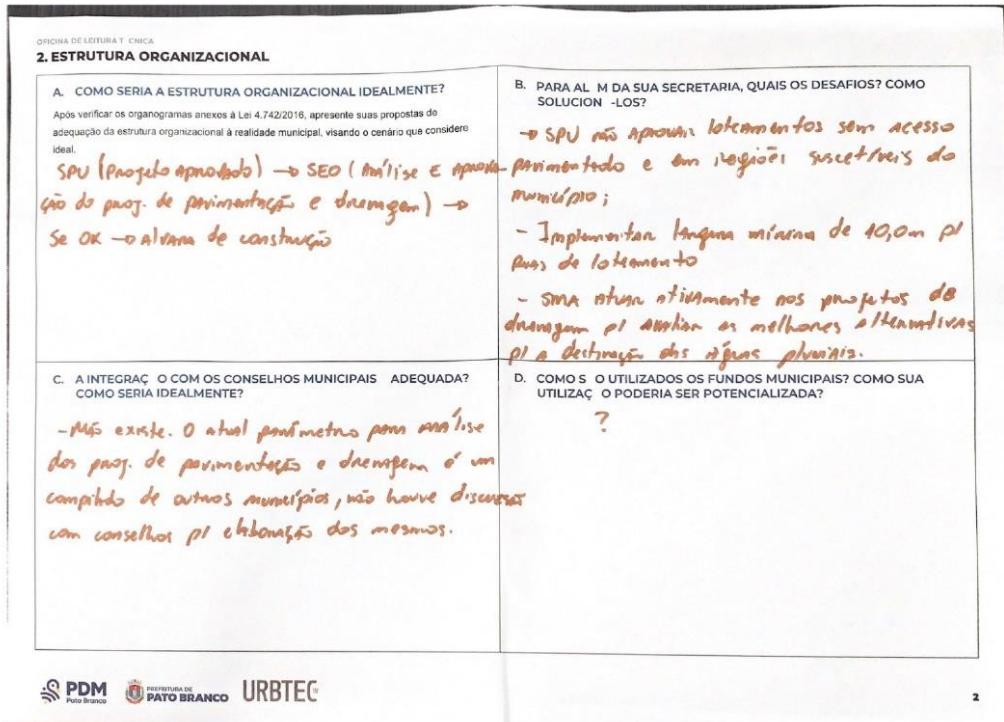 OFICINA DE LEITURA T CNICA
2. ESTRUTURA ORGANIZACIONAL
A. COMO SERIA A ESTRUTURA ORGANIZACIONAL IDEALMENTE?
Após verificar os organogramas anexos à Lei 4.742/2016, apresente suas propostas de
adequação da estrutura organizacional à realidade municipal, visando o cenário que considere
ideal.
SPU (Projeto Aprovado) → SEO (Análise e aprova-
ção do proj. de pavimentação e drenagem) →
Se OK → Alvará de construção
B. PARA AL M DA SUA SECRETARIA, QUAIS OS DESAFIOS? COMO
SOLUCION -LOS?
→ SPU não aprovar loteamentos sem acesso
pavimentado e em regiões suscetíveis do
município;
- Implementar largura mínima de 10,0m p/
ruas de loteamento
- SMA atuar ativamente nos projetos de
drenagem p/ avaliar as melhores alternativas
p/ a destinação das águas pluviais.
C. A INTEGRAÇ O COM OS CONSELHOS MUNICIPAIS ADEQUADA?
COMO SERIA IDEALMENTE?
- Não existe. O atual parâmetro para análise
dos proj. de pavimentação e drenagem é um
compilado de outros municípios, não houve discussão
com conselhos p/ elaboração dos mesmos.
D. COMO S O UTILIZADOS OS FUNDOS MUNICIPAIS? COMO SUA
UTILIZAÇ O PODERIA SER POTENCIALIZADA?
?
PDM
Pato Branco
PREFEITURA DE
PATO BRANCO
URBTEC
2